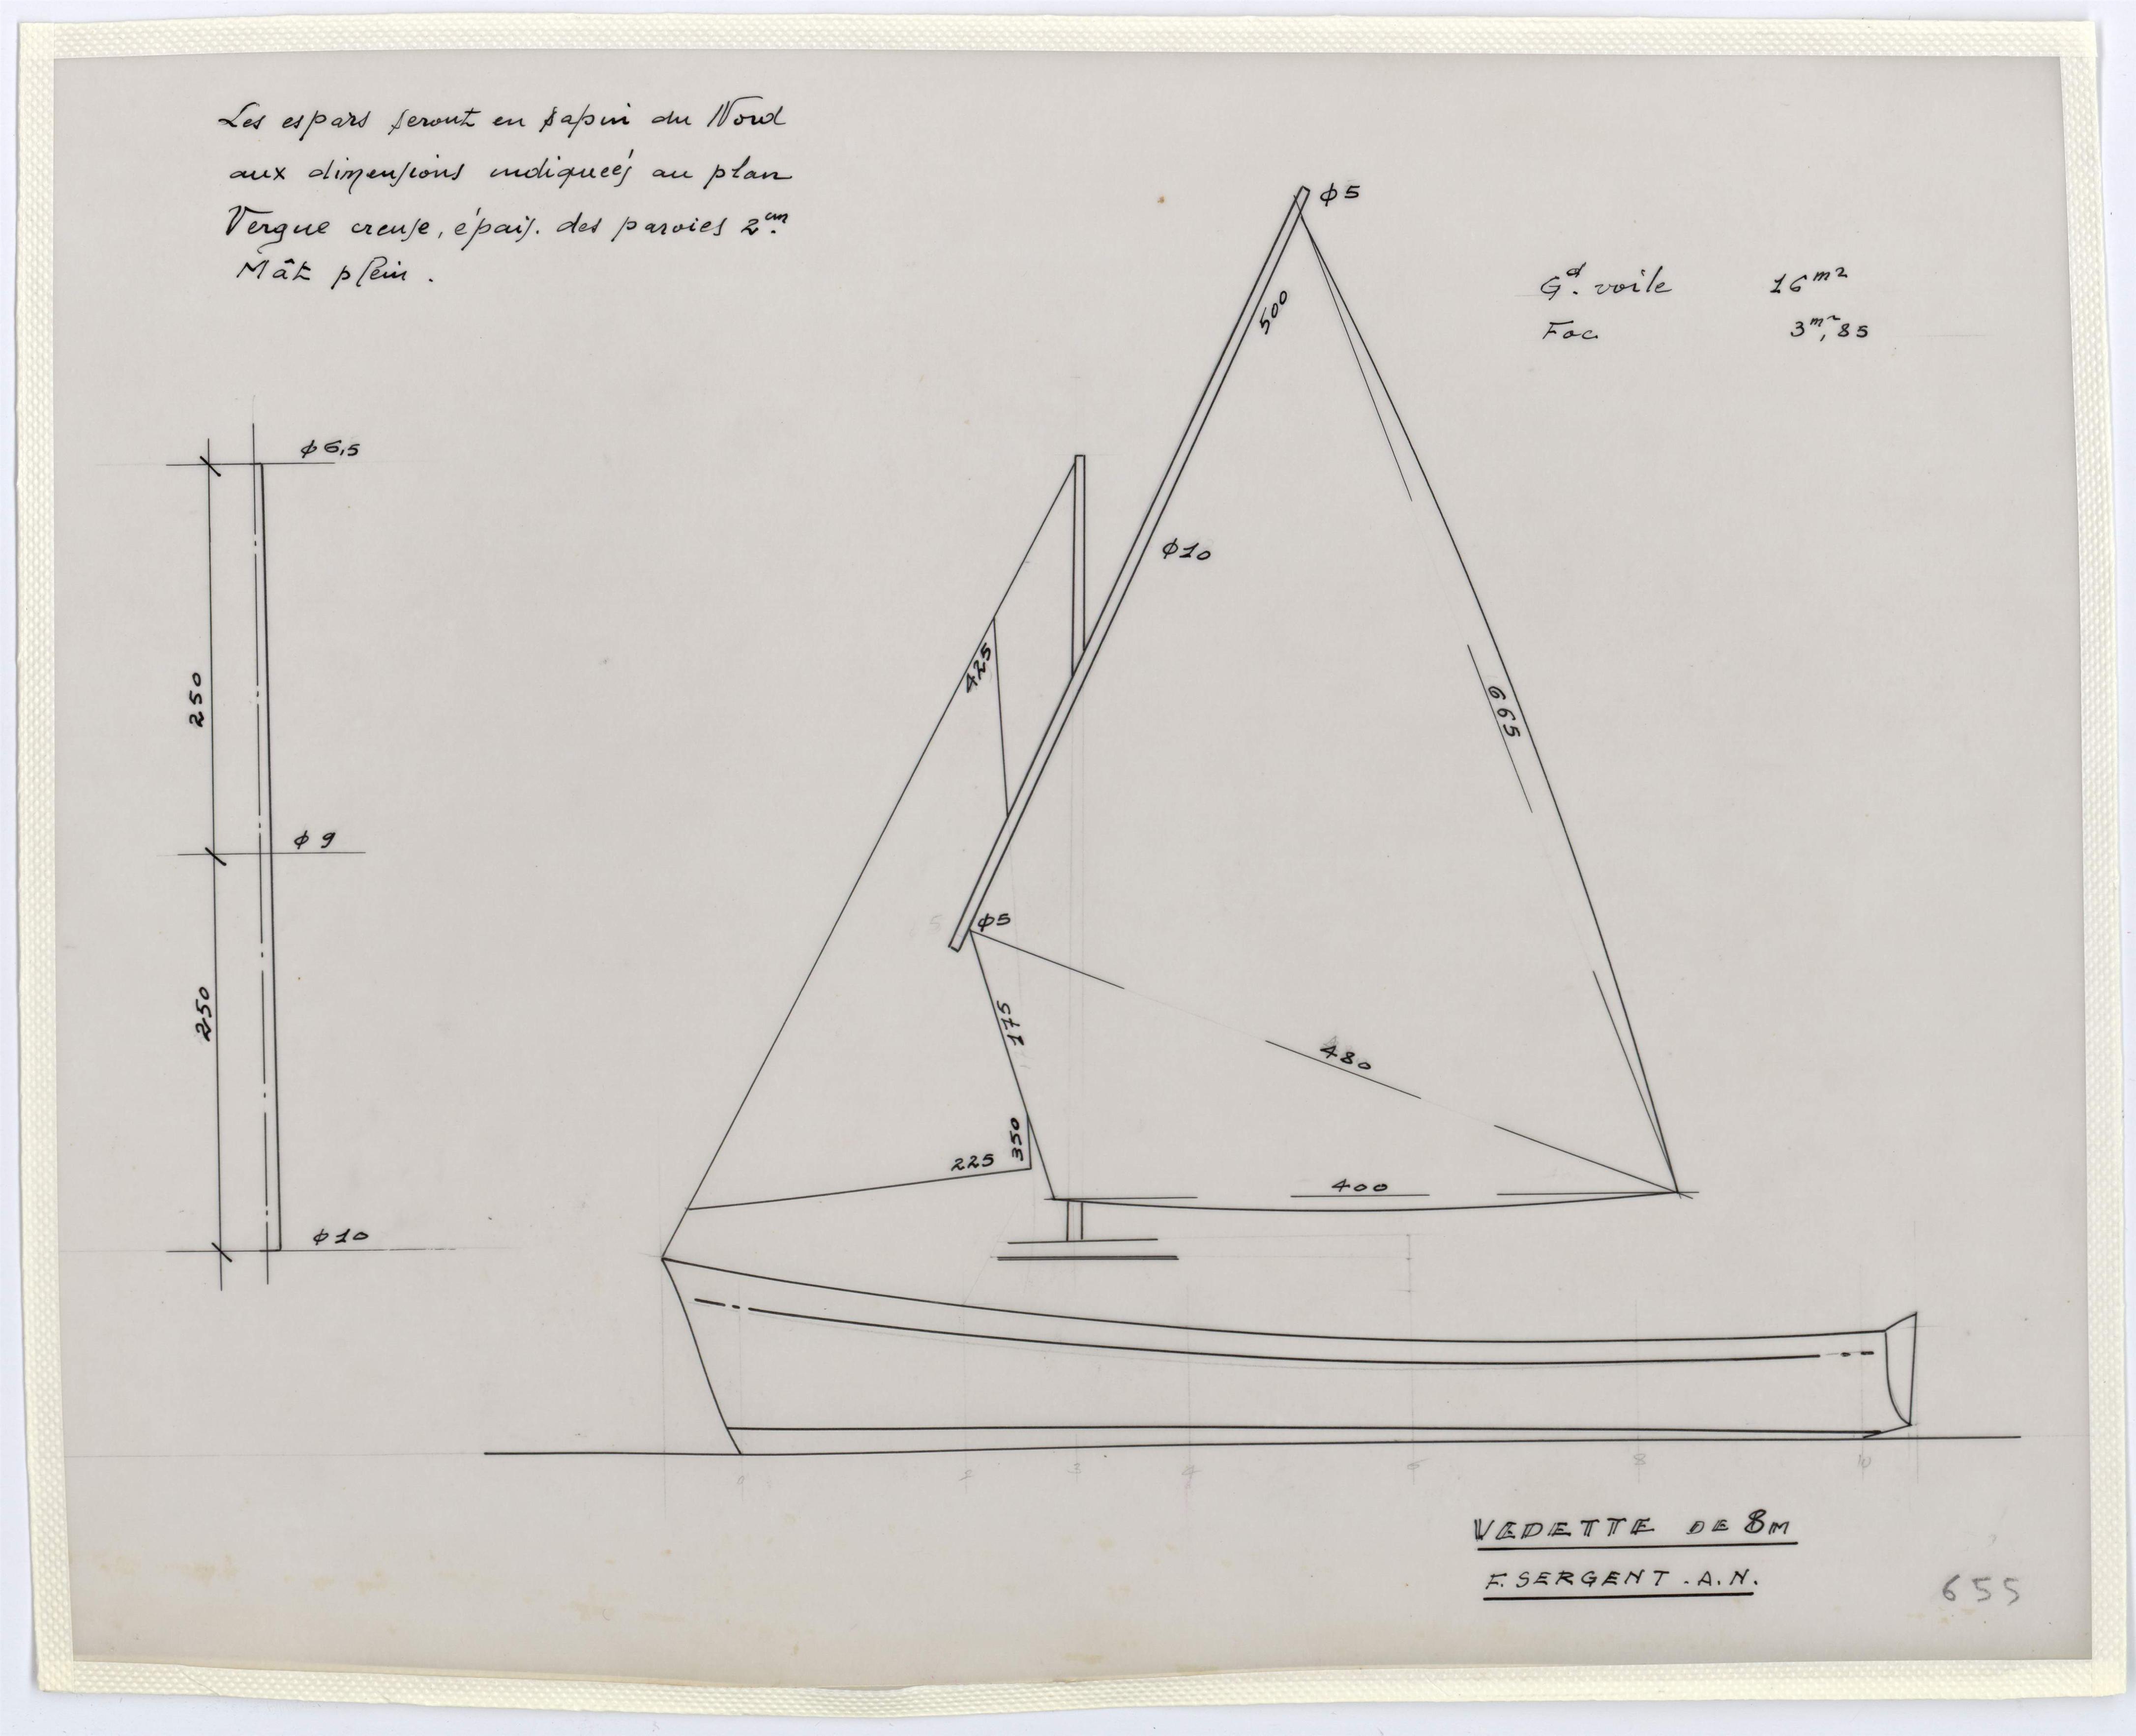 Les espars seront en sapin du Nord
aux dimensions indiqueés au plan
Vergue creuse, épais. des paroies 2 cm.
Mât plein.
Gd. voile 16 m2
Foc 3 m2, 85
ϕ5
500
ϕ10
425
665
ϕ5
175
480
350
225
400
ϕ6,5
250
ϕ 9
250
ϕ10
1 2 3 4 6 8 10
VEDETTE DE 8M
F. SERGENT. A.N.
655